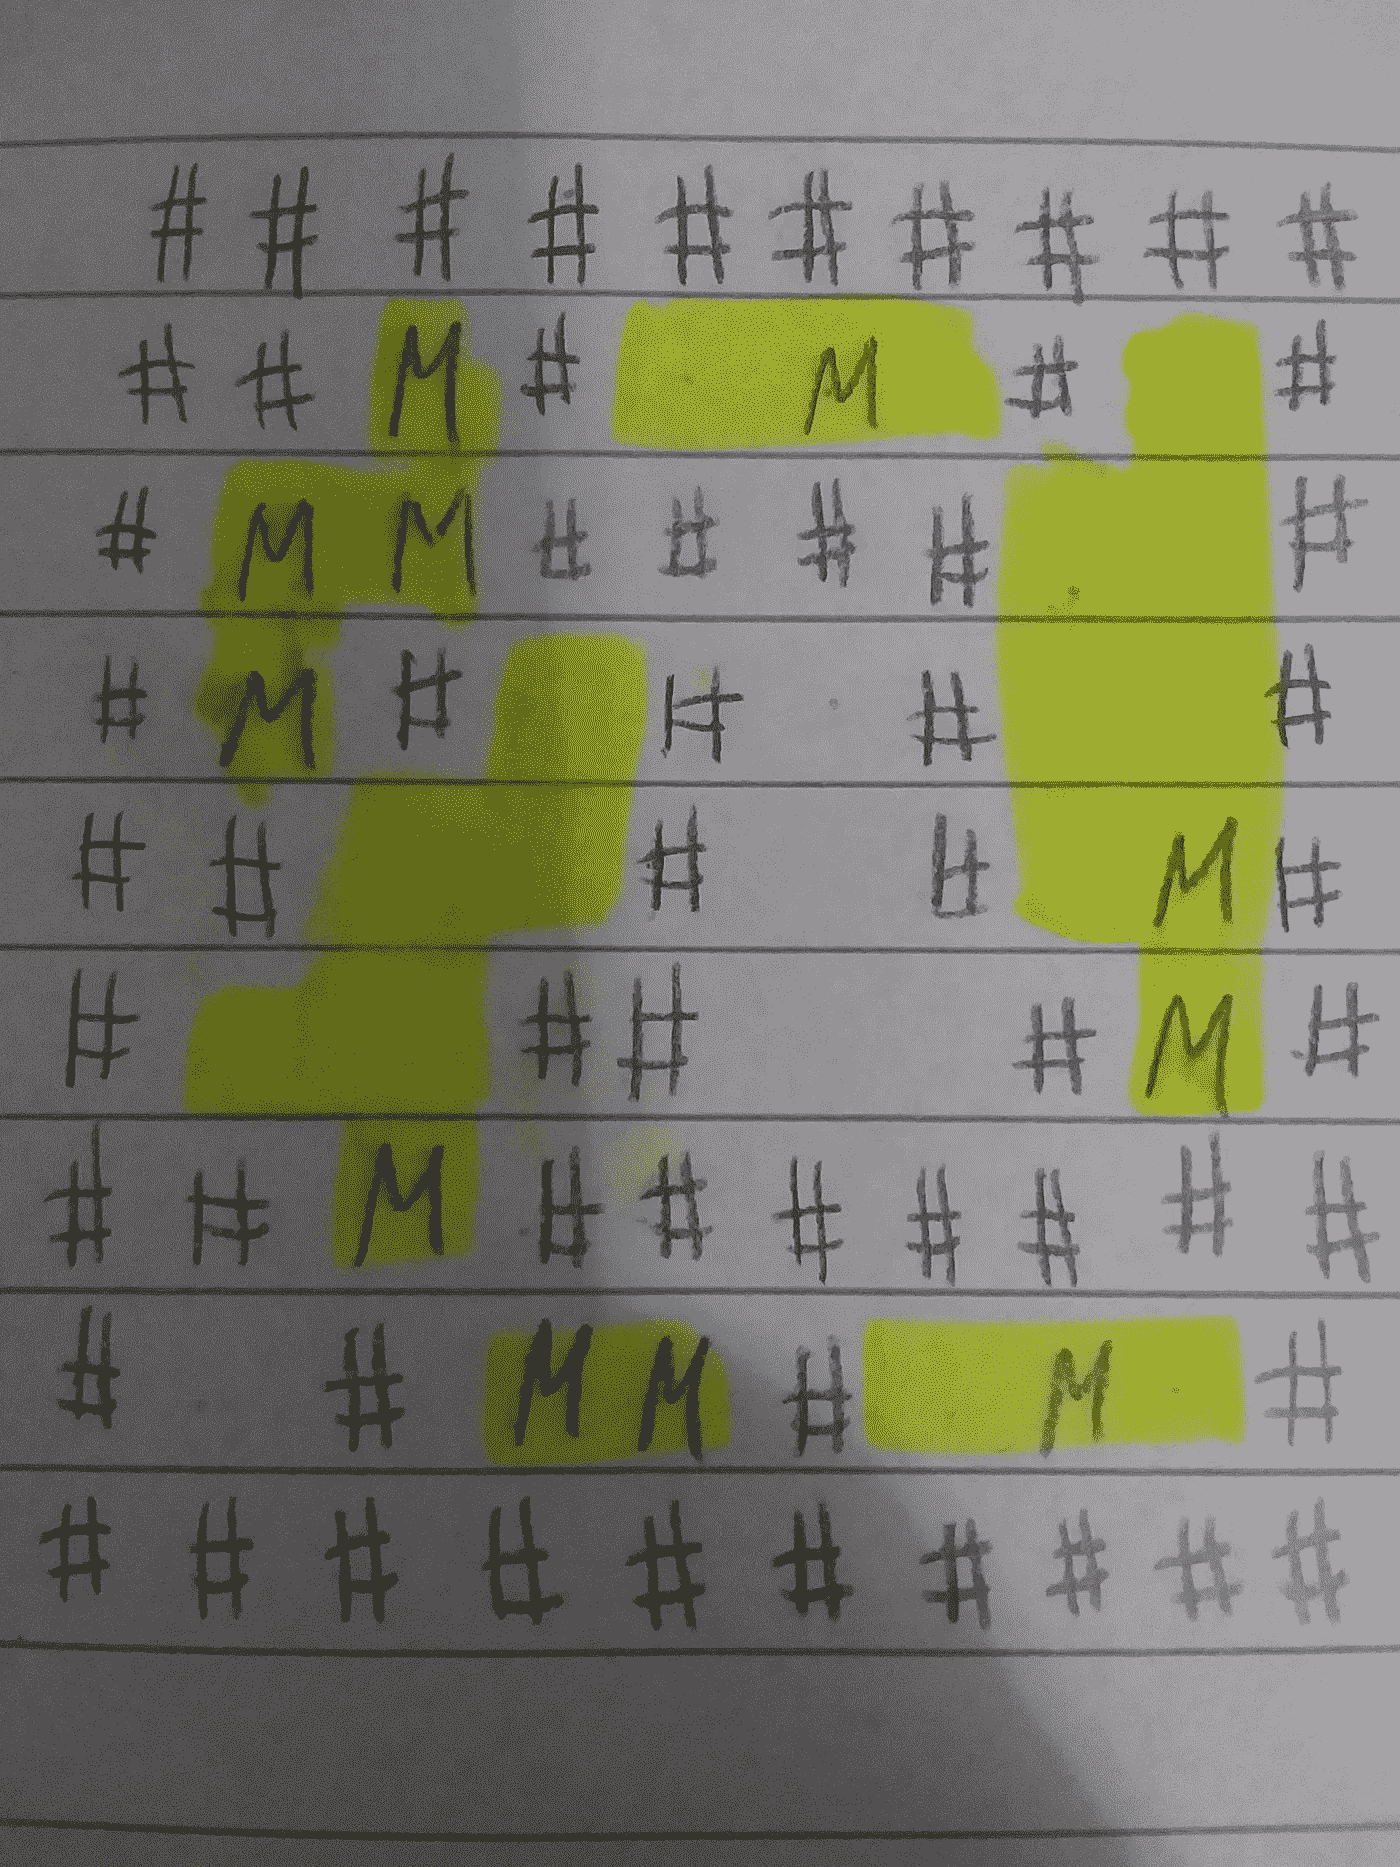 # # # # # # # # # #
# # M # M # #
# M M # # # # #
# M # # # #
# # # # M #
# # # # M #
# # M # # # # # # #
# # M M # M #
# # # # # # # # # #